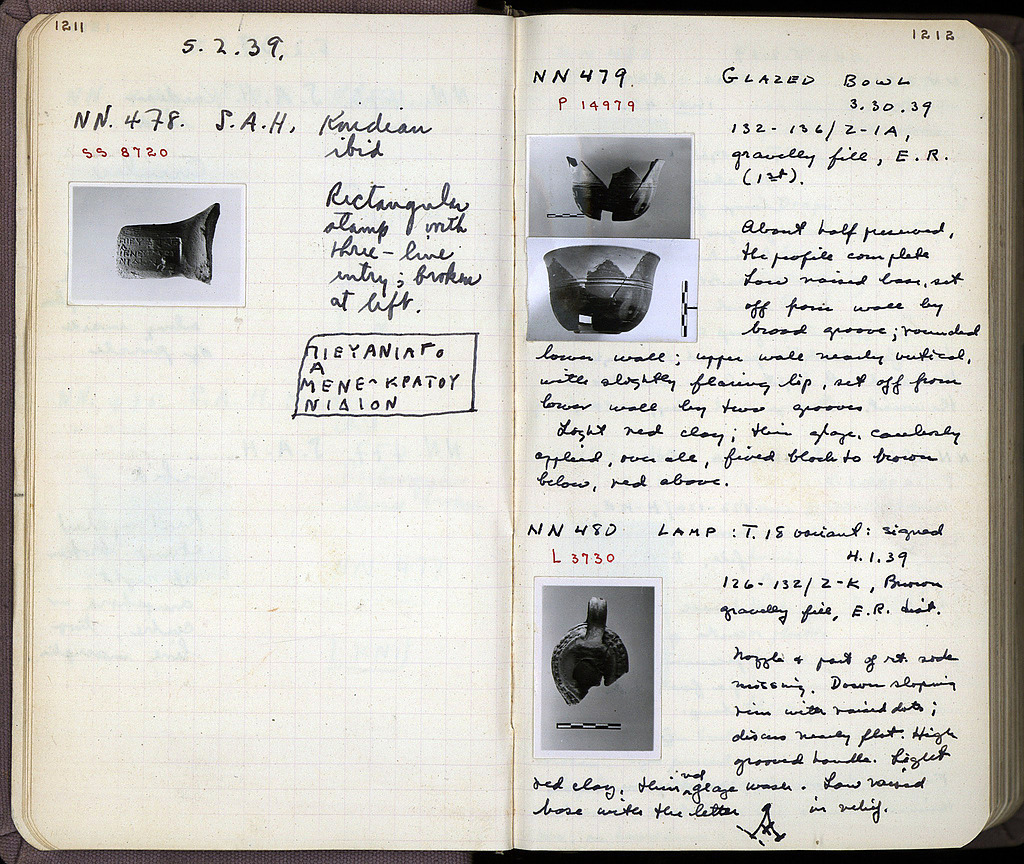 1211
5.2.39.
NN. 478. S.A.H. Knidian
SS 8720
ibid
Rectangular
stamp with
three-line
entry; broken
at left.
ΠΙΕΥΑΝΙΑΓΟ
Α
ΜΕΝΕ^ΚΡΑΤΟΥ
ΝΙΔΙΟΝ
1212
NN 479. GLAZED BOWL
P 14979
3.30.39
132-136/Z-IA,
gravelly fill, E.R.
(1st).
About half preserved,
the profile complete
Low raised base, set
off from wall by
broad groove; rounded
lower wall; upper wall nearly vertical,
with slightly flaring lip, set off from
lower wall by two grooves
Light red clay; thin glaze, carelessly
applied, over all, fired black to brown
below, red above.
NN 480 LAMP : T. 18 variant: signed
L 3730
4.1.39
126-132/Z-K, Brown
gravelly fill, E.R. dist.
Nozzle & part of rt. side
missing. Down sloping
rim with raised dots;
discus nearly flat. High
grooved handle. Light
red clay, thin red glaze wash. Low raised
base with the letter A in relief.